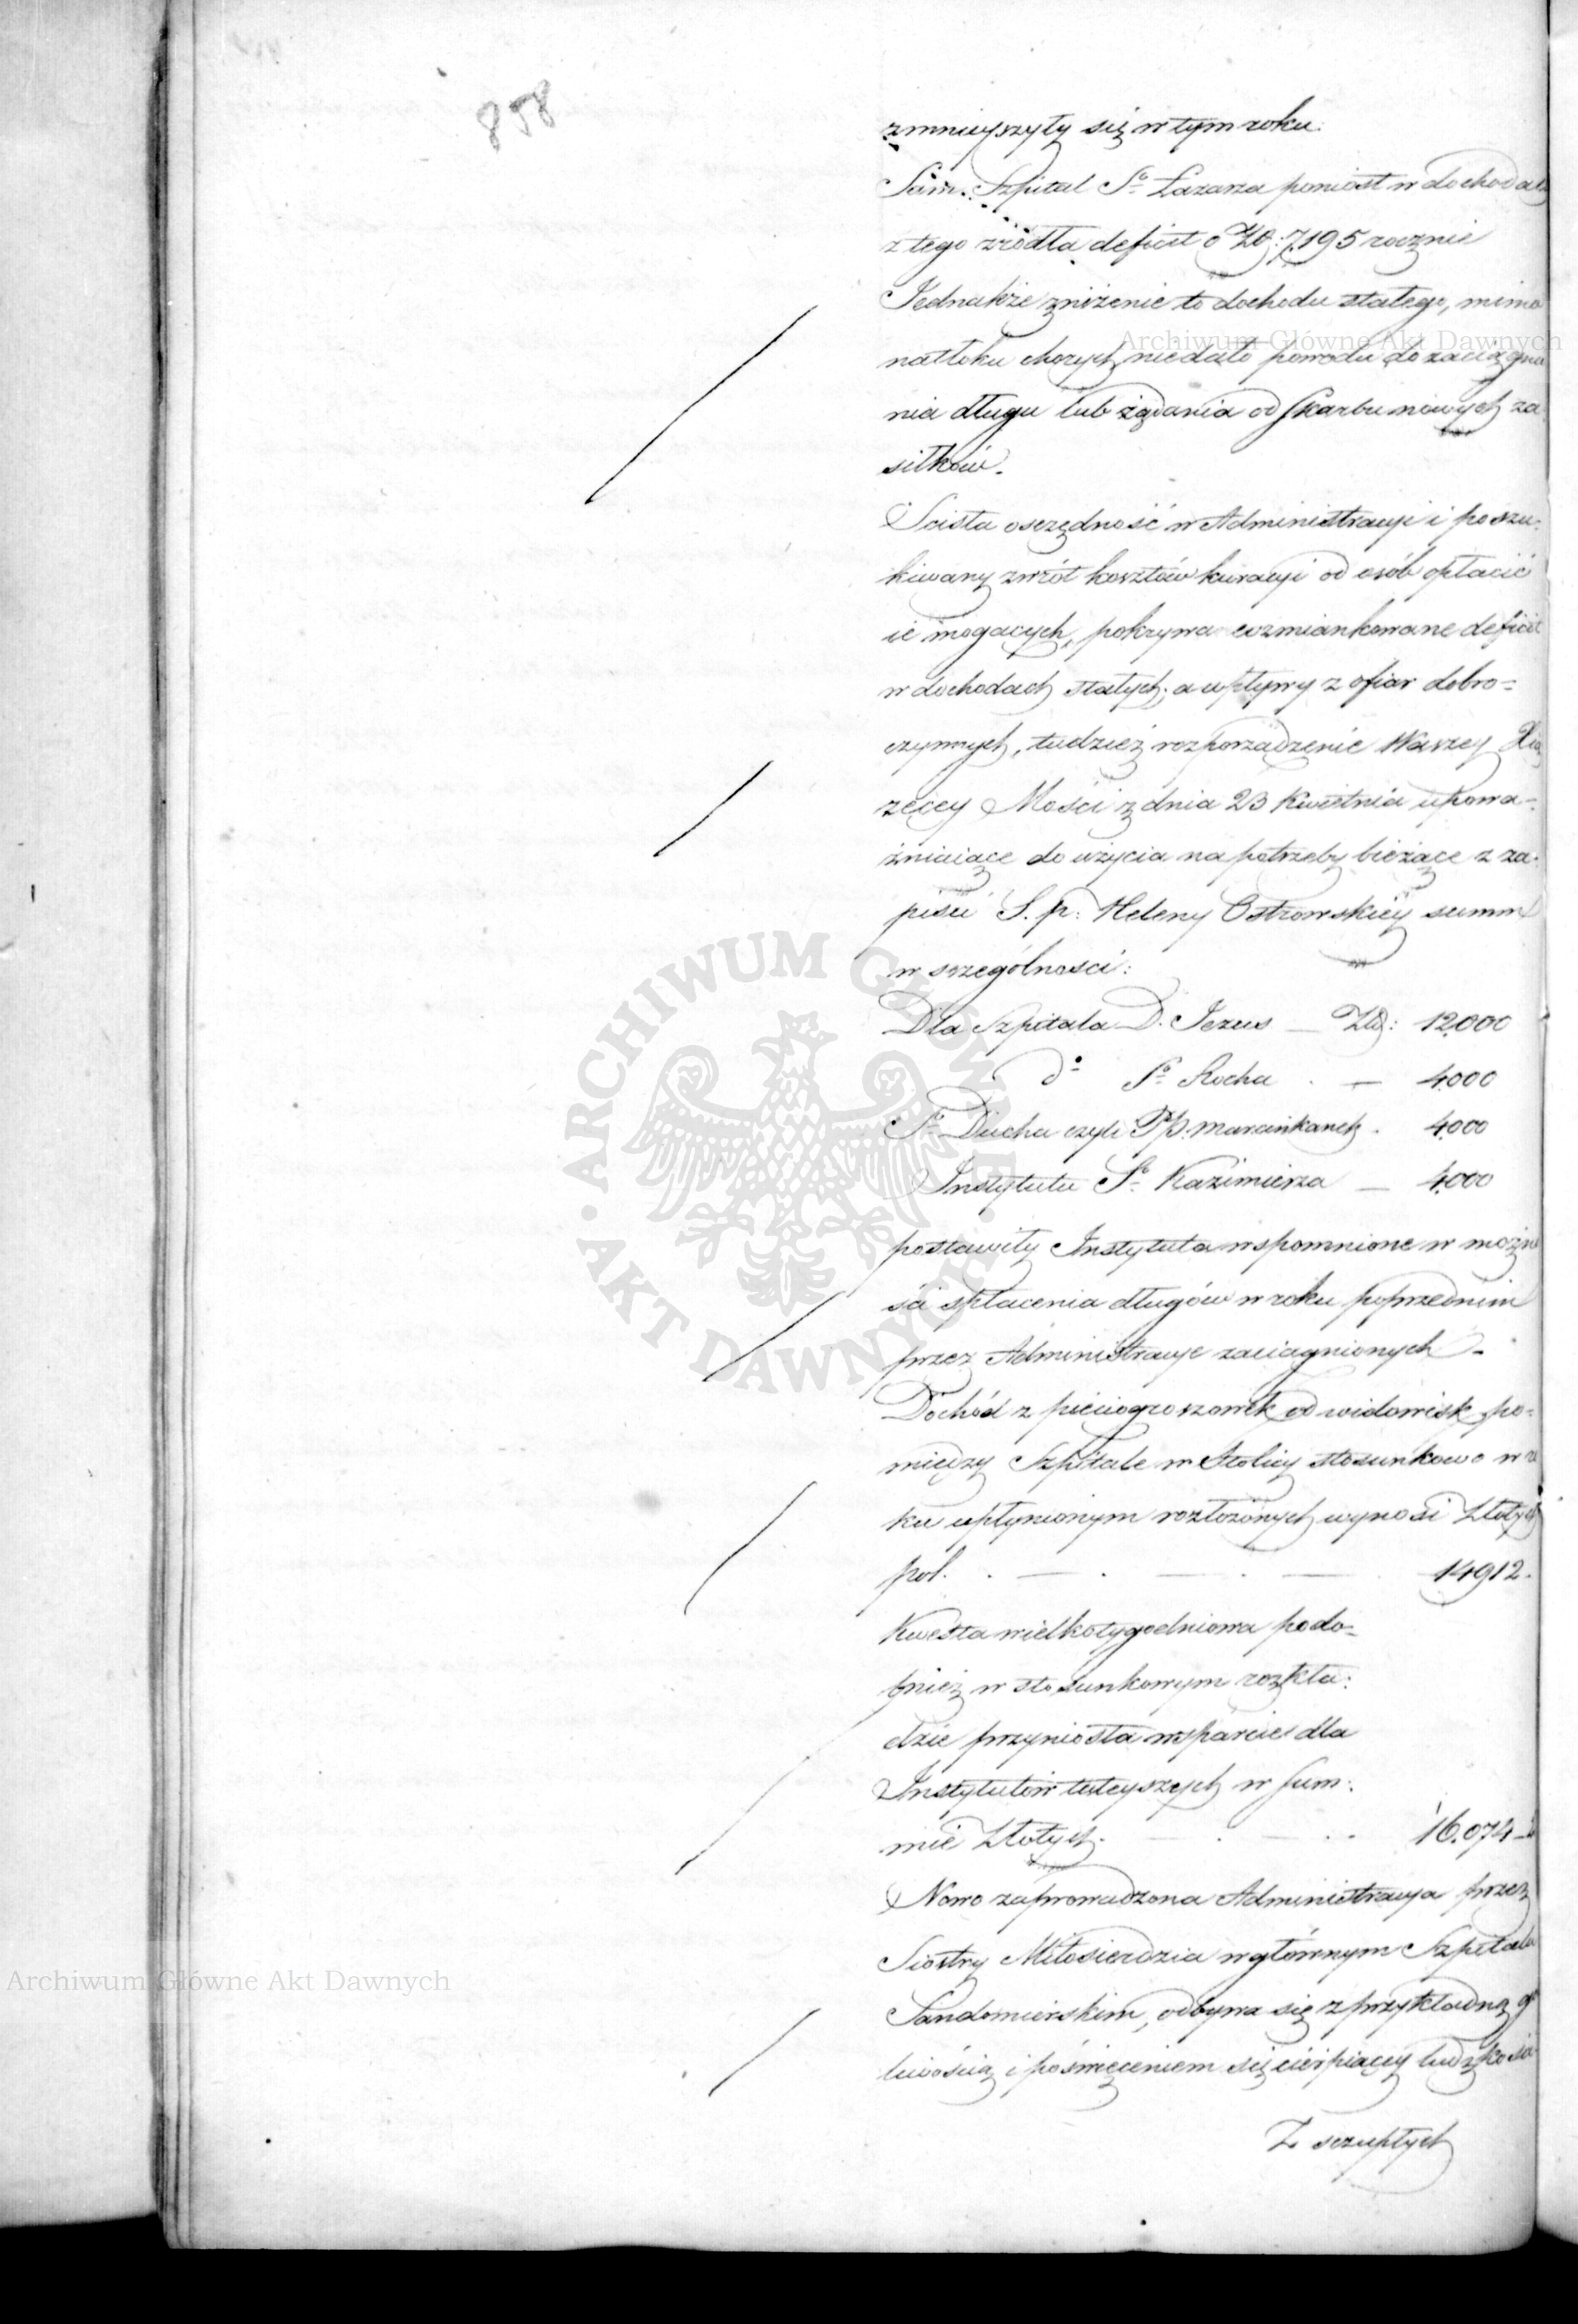 858
zmnieyszyły się w tym roku.
Sam Szpital Sº Łazarza poniósł w dochodach
z tego źródła deficit o Zł: 7,195 rocznie
Jednakże zniżenie to dochodu stałego, mimo
natłoku chorych, niedało powodu do zaciągnie
nia długu lub żądania od Skarbu nowych za
siłków.
Scisła osczędność w Administracyi i poszu-
kiwany zwrót kosztów kuracyi od osób opłacić
ie mogących, pokrywa wzmiankowane deficit
w dochodach stałych; a wpływy z ofiar dobro=
czynnych, tudzież rozporządzenie Waszey Xią
żęcey Mości z dnia 23 Kwietnia upowa-
żniaiące do użycia na potrzeby bieżące z za-
pisu S. p: Heleny Ostrowskiey summ
w sczególności:
Dla Szpitala D. Jezus — Zł: 12,000
dº Sº Rocha . — 4,000
Sº Ducha czyli Pp: Marcinkanek . 4,000
Instytutu Sº Kazimierza — 4,000
postawiły Instytuta wspomnione w możno
ści spłacenia długów w roku poprzednim
przez Administracye zaciągnionych.
Dochód z pięciogroszówek od widowisk po-
między Szpitale w Stolicy stosunkowo w ro
ku upłynionym rozłożonych wynosi Złotych
pol. . — . — . — 14912.
Kwesta wielkotygodniowa podo-
bnież w stosunkowym rozkła-
dzie przyniosła wsparcie dla
Instytutów tuteyszych w Sum-
mie Złotych. — . — . . 16.074
Nowo zaprowadzona Administracya przez
Siostry Miłosierdzia w głównym Szpitalu
Sandomierskim, odbywa się z przykładną g
liwością i poświęceniem się cierpiącey ludzkości
Z sczupłych
Archiwum Główne Akt Dawnych
Archiwum Główne Akt Dawnych
ARCHIWUM GŁÓWNE · AKT DAWNYCH ·